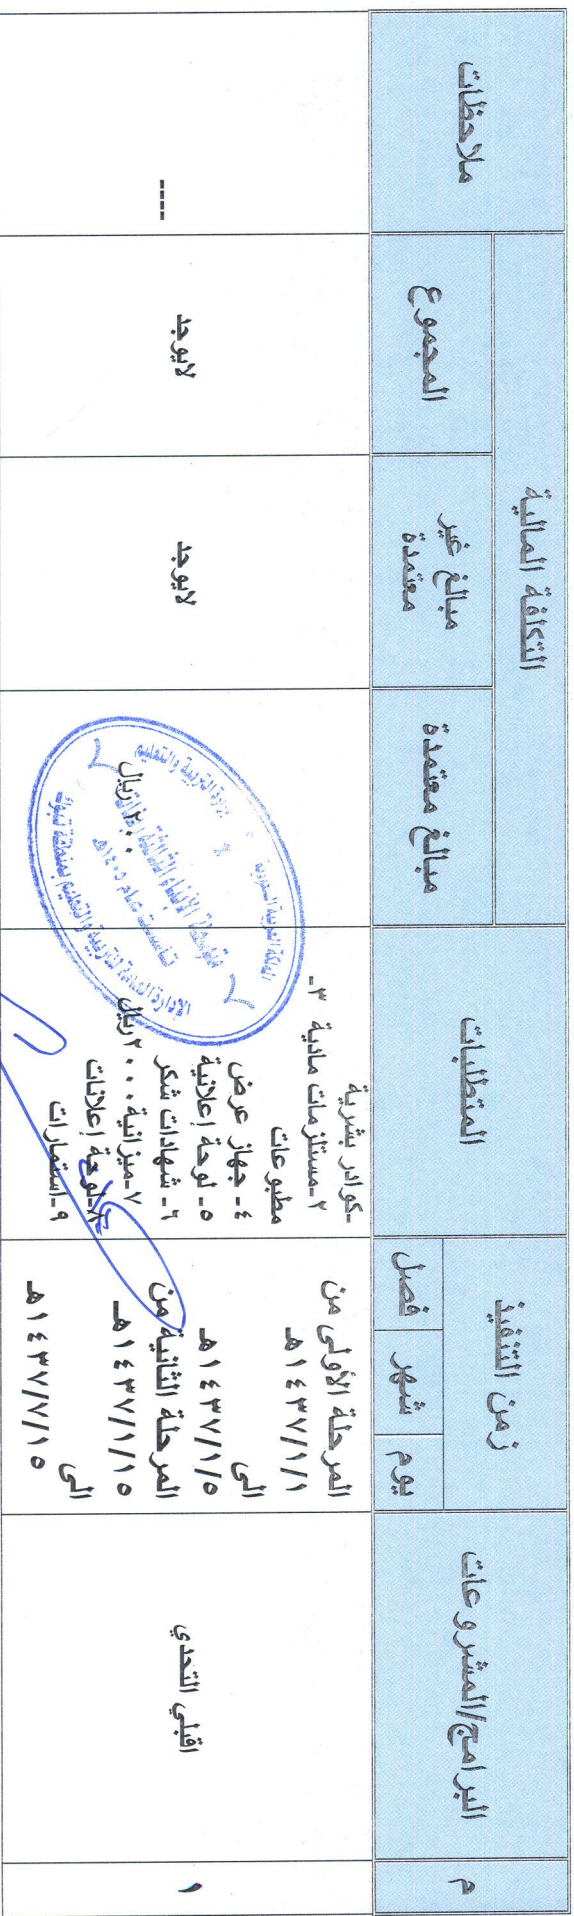 م
البرامج/المشروعات
زمن التنفيذ
يوم
شهر
فصل
المتطلبات
التكلفة المالية
مبالغ معتمدة
مبالغ غير
معتمدة
المجموع
ملاحظات
١
اقبلي التحدي
المرحلة الأولى من
١٤٣٧/١/١هـ
الى
١٤٣٧/١/٥هـ
المرحلة الثانية من
١٤٣٧/١/١٥هـ
الى
١٤٣٧/٧/١٥هـ
-كوادر بشرية
٢-مستلزمات مادية ٣-
مطبوعات
٤- جهاز عرض
٥- لوحة إعلانية
٦- شهادات شكر
٧-ميزانية ٢٠٠٠ريال
٨-لوحة إعلانات
٩-استمارات
٢٠٠٠ريال
لايوجد
لايوجد
----
المملكة العربية السعودية
وزارة التربية والتعليم
الإدارة العامة للتربية والتعليم بمنطقة تبوك
تأسست عام ١٤٠٥هـ